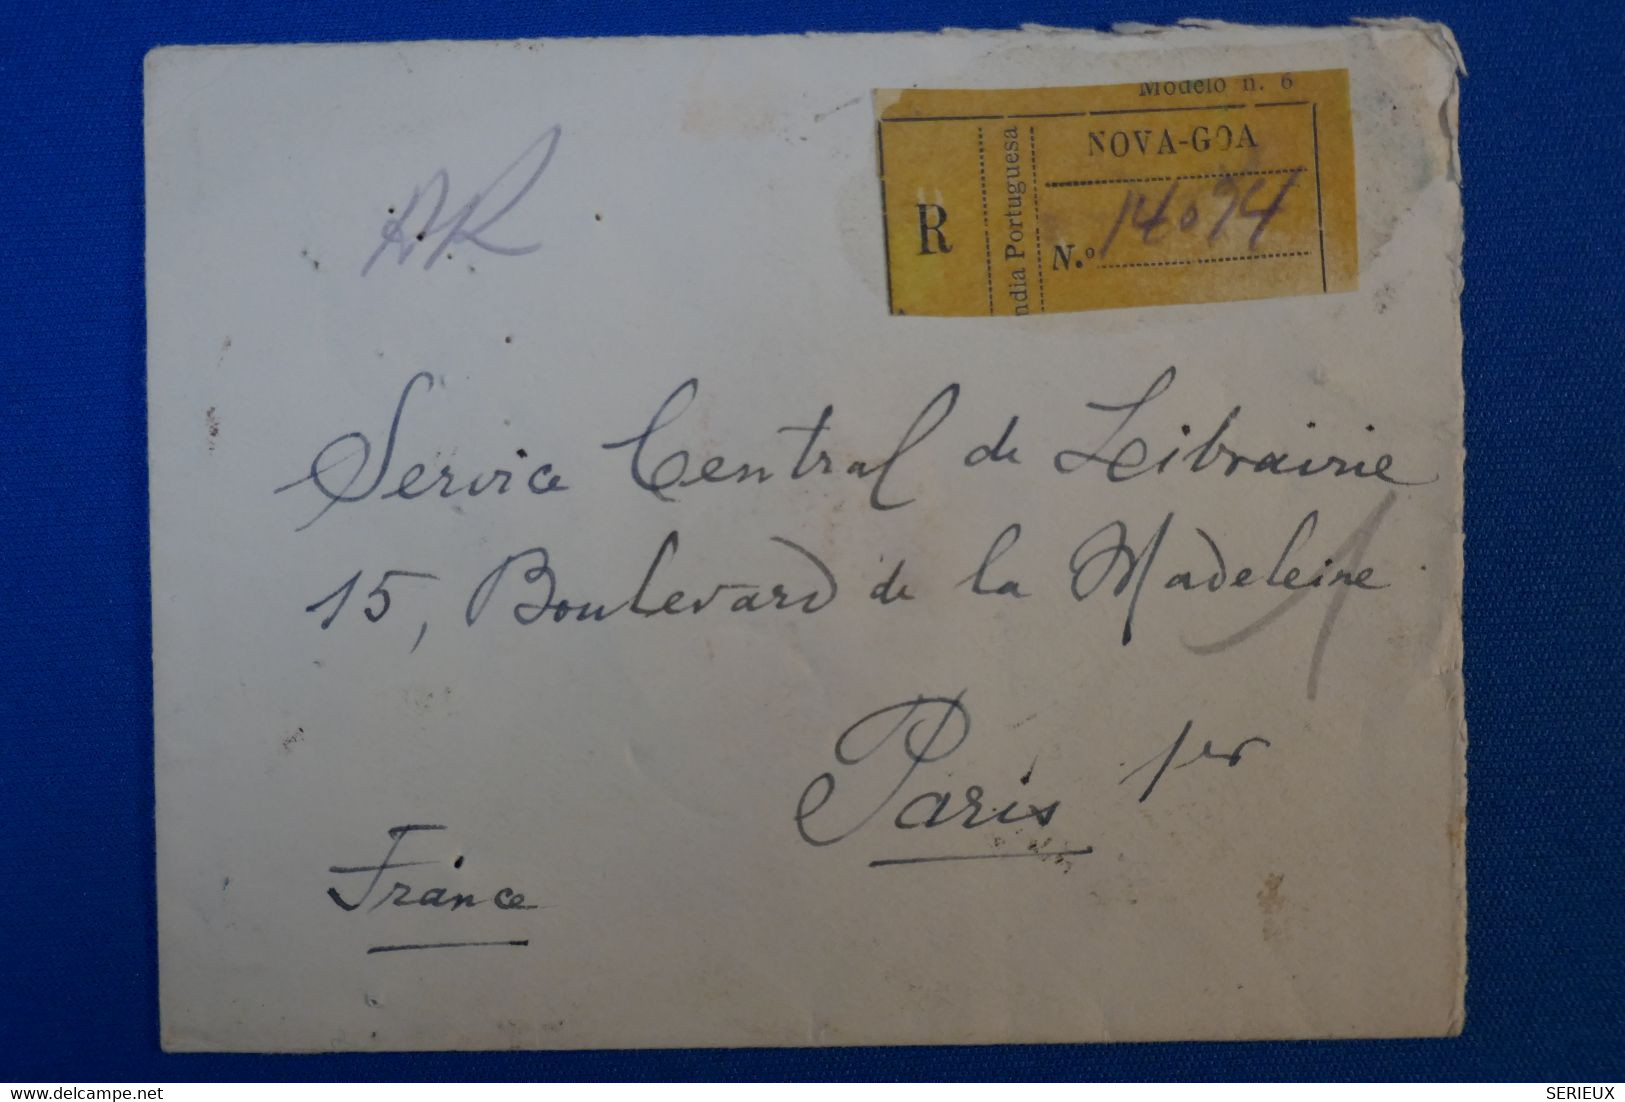 Modelo n. 6
NOVA-GOA
R
India Portuguesa
N.º 14094
AR
Service Central de Librairie
15, Boulevard de la Madeleine
Paris 1er
France
SERIEUX